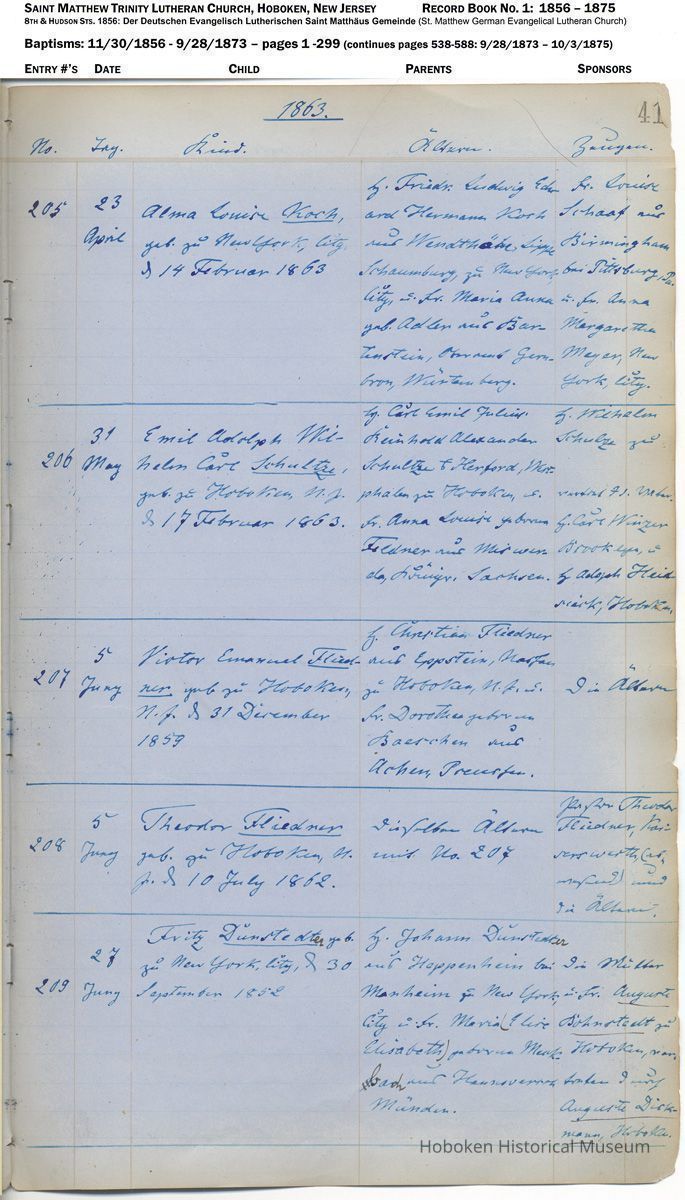 SAINT MATTHEW TRINITY LUTHERAN CHURCH, HOBOKEN, NEW JERSEY RECORD BOOK NO. 1: 1856 – 1875
8TH & HUDSON STS. 1856: Der Deutschen Evangelisch Lutherischen Saint Matthäus Gemeinde (St. Matthew German Evangelical Lutheran Church)
Baptisms: 11/30/1856 - 9/28/1873 – pages 1 -299 (continues pages 538-588: 9/28/1873 – 10/3/1875)
ENTRY #'S DATE CHILD PARENTS SPONSORS
1863. 41
No. Tag. Kind. Ältern. Zeugen.
205
23
April
Alma Louise Koch,
geb. zu NewYork, City
d 14 Februar 1863
H. Friedr. Ludwig Edu
ard Hermann Koch
aus Lippe
Schaumburg, zu New York
City, u. Fr. Maria Anna
geb. Adler aus Bar-
tenstein, Oberamt Gera-
bron, Würtemberg.
Fr. Louise
Schaaf aus
Birmingham
bei Pittsburg, Pa.
u. Fr. Anna
Margaretha
Meyer, New
York, City.
206
31
May
Emil Adolph Wil-
helm Carl Schultze,
geb. zu Hoboken, N. J.
d 17 Februar 1863.
H. Carl Emil Julius
Reinhold Alexander
Schultze Herford, West-
phalen zu Hoboken, u.
Fr. Anna Louise geborene
Feldner aus
Königr. Sachsen.
H. Wilhelm
Schulze zu
H. Carl Winzer
Brooklyn, u
H Adolph Heid-
sieck, Hoboken.
207
5
Juny
Victor Emanuel Flied-
ner geb zu Hoboken,
N. J. d 31 December
1859
H. Christian Fliedner
aus Eppstein, Nassau
zu Hoboken, N. J. u.
Fr. Dorothea geborene
Baeschen aus
Achen, Preussen.
Die Ältern
208
5
Juny
Theodor Fliedner
geb. zu Hoboken, N.
J. d 10 July 1862.
Dieselben Ältern
mit No. 207
Pastor Theodor
Fliedner, Kai-
serswerth (ab-
wesend) und
die Ältern.
209
27
Juny
Fritz Dünstedter geb.
zu New York, City, d 30
September 1852
H. Johann Dünstedter
aus Heppenheim bei
Manheim zu New York
City u. Fr. Maria (Elise
Elisabeth) geborene Merk
bach aus Hannoverisch
Münden.
Die Mutter
u. Fr. Auguste
Böhnstedt zu
Hoboken, ver-
treten durch
Auguste Dick-
mann, Hoboken.
Hoboken Historical Museum